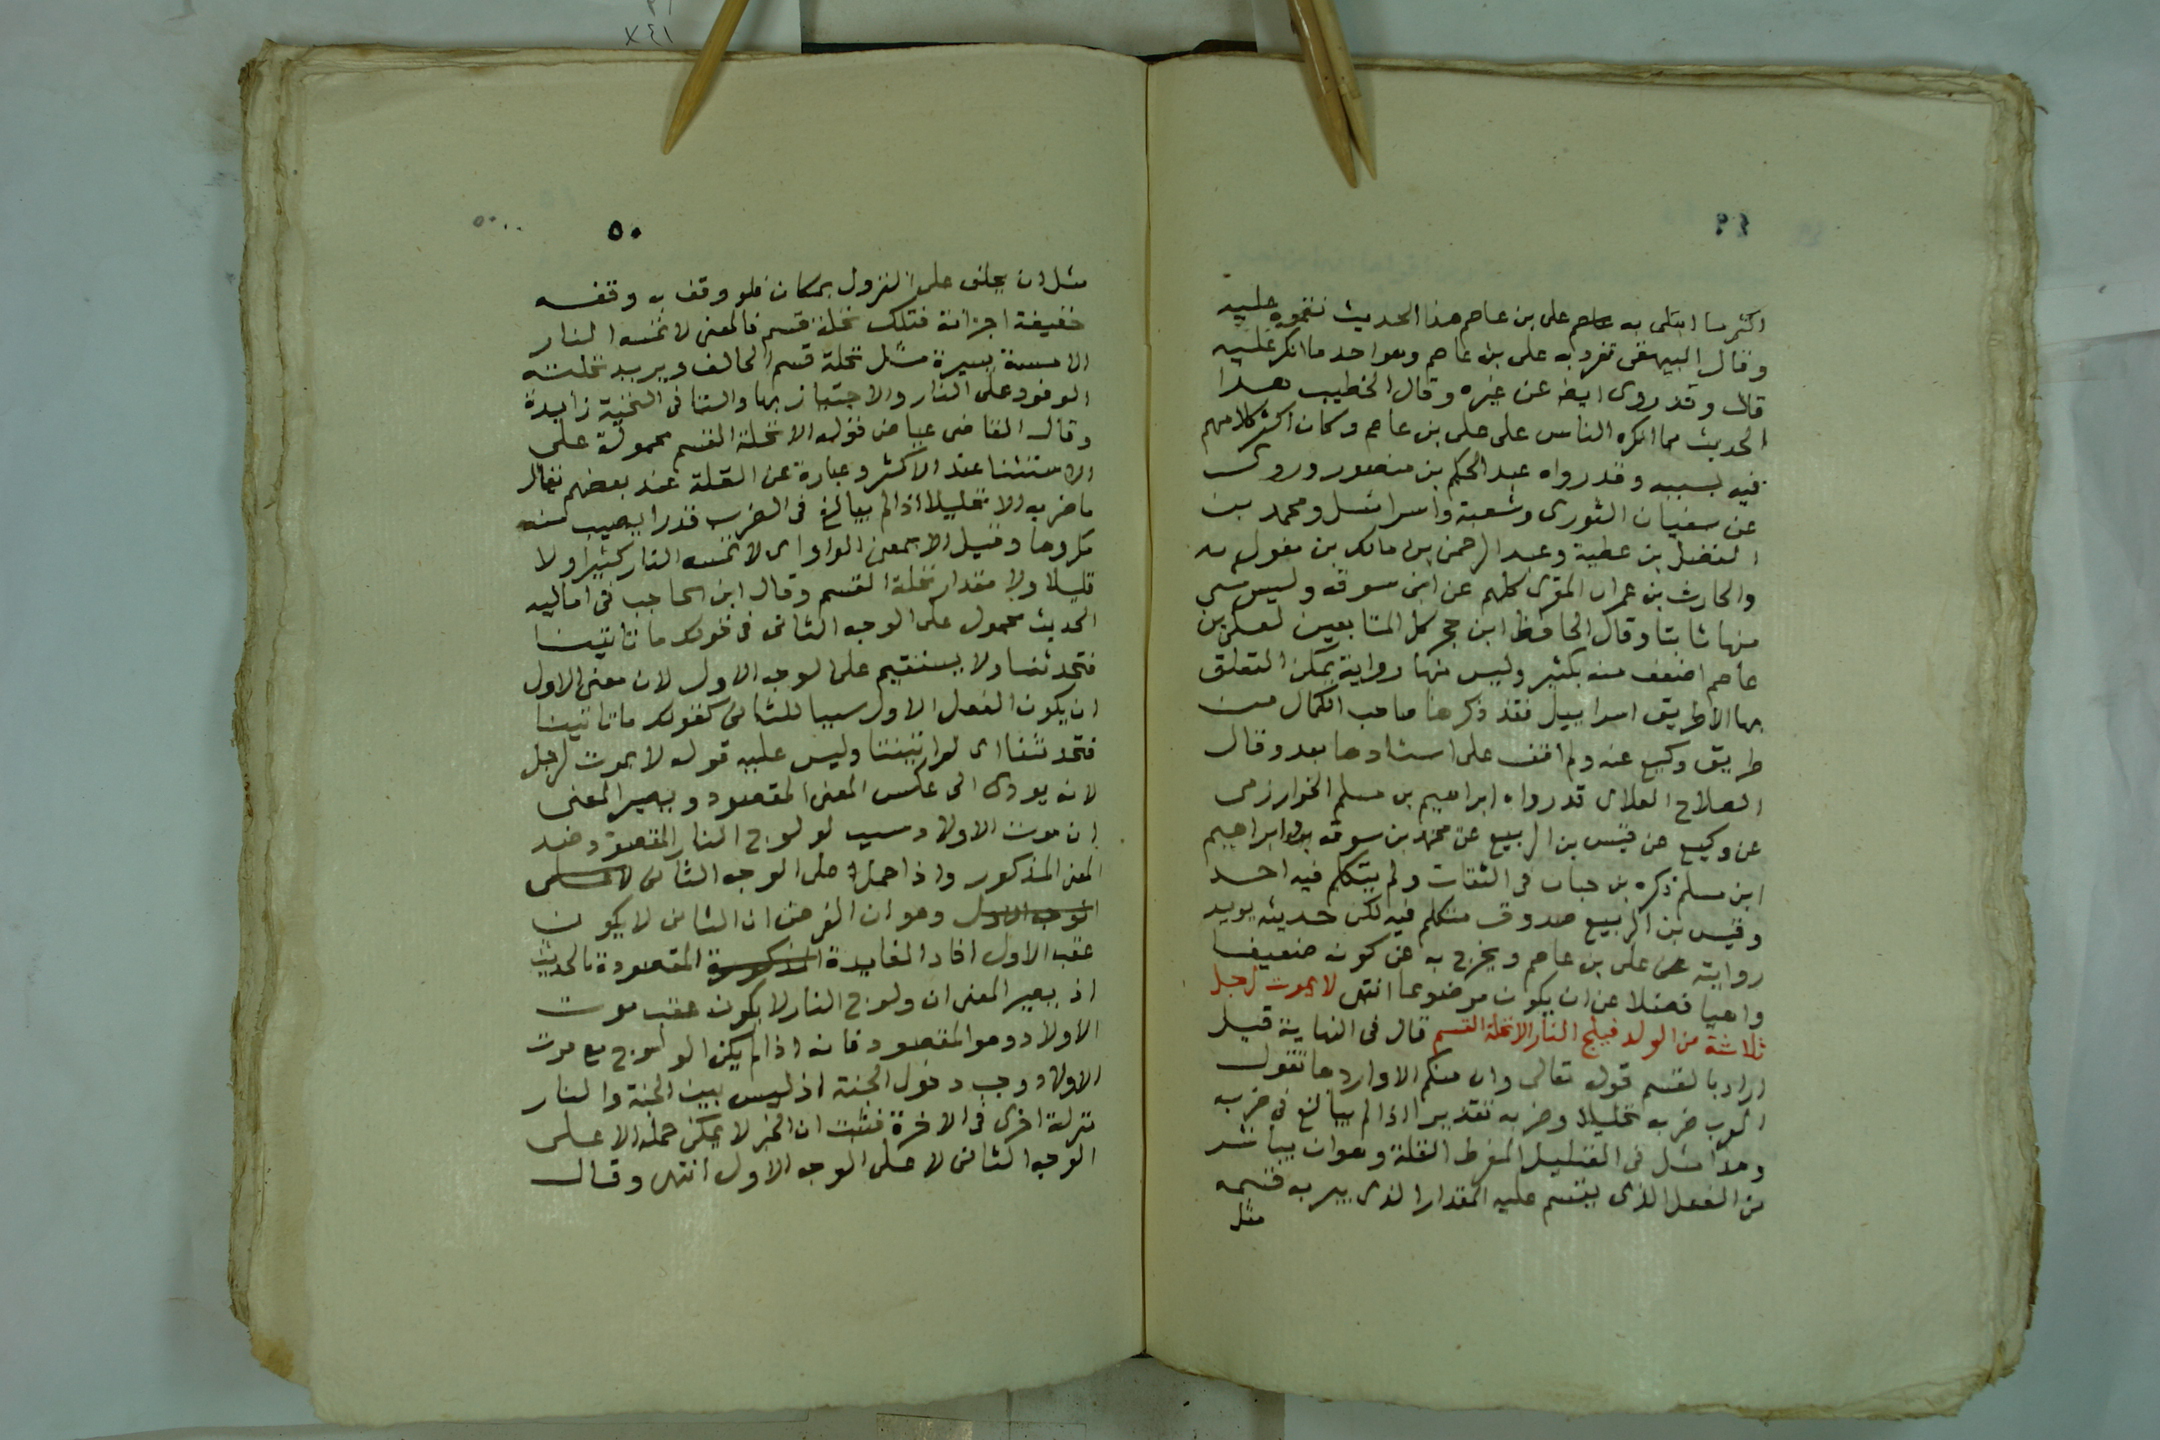 ٤٩
اكثر ما ابتلى به عاصم على بن عاصم هذا الحديث نقموه عليه
وقال البيهقى تفرد به على بن عاصم وهو احد ما انكر عليه
قال وقد روى ايضا عن غيره وقال الخطيب هذا
الحديث مما انكره الناس على على بن عاصم وكان اكثر كلامهم
فيه بسببه وقد رواه عبد الحكم بن منصور وروى
عن سفيان الثورى وشعبة واسرائيل ومحمد بن
الفضل بن عطية وعبد الرحمن بن مالك بن مغول
والحارث بن عمران المقرى كلهم عن ابن سوقه وليس شى
منها ثابتا وقال الحافظ ابن حجر كل المتابعين لعلى بن
عاصم اضعف منه بكثير وليس منها رواية يمكن التعلق
بها الا طريق اسراييل فقد ذكرها صاحب الكمال من
طريق وكيع عنه ولم اقف على اسنادها بعد وقال
الصلاح العلاى قد رواه ابراهيم بن مسلم الخوارزمى
عن وكيع عن قيس بن الربيع عن محمد بن سوقه وابراهيم
ابن مسلم ذكره بن حبان فى الثقات ولم يتكلم فيه احد
وقيس بن الربيع صدوق متكلم فيه لكن حديثه يويد
رواية على بن عاصم ويخرج به عن كونه ضعيفا
واهيا فضلا عن ان يكون موضوعا انتهى لا يموت لرجل
ثلاثة من الولد فيلج النار الا تحلة القسم قال فى النهاية قيل
اراد بالقسم قوله تعالى وان منكم الا واردها تقول
العرب ضربه تحليلا وضربه تعذيرا اذا لم يبالغ فى ضربه
وهذا مثل فى القليل المفرط القلة وهو ان يباشر
من الفعل الذى يقسم عليه المقدار الذى يبر به قسمه
مثل
٥٠
مثل ان يحلف على النزول بمكان فلو وقف به وقفه
خفيفة اجزاته فتلك تحلة قسم فالمعنى لا تمسه النار
الا مسة يسيرة مثل تحلة قسم الحالف ويريد تحلته
الوفود على النار والاجتياز بها والتا فى التحية زايدة
وقال القاضى عياض قوله الا تحلة القسم محمولة على
الاستثنا عند الاكثر وعبارة عن القلة عند بعضهم يقال
ما ضربه الا تحليلا اذا لم يبالغ فى الضرب قدرا يصيب منه
مكروها وقيل الا بمعنى الواو اى لا تمسه النار كثيرا ولا
قليلا ولا مقدار تحلة القسم وقال ابن الحاجب فى اماليه
الحديث محمول على الوجه الثانى فى قولك ما تاتينا
فتحدثنا ولا يستقيم على الوجه الاول لان معنى الاول
ان يكون الفعل الاول سببا للثانى كقولك ما تاتينا
فتحدثنا اى لو اتيتنا وليس عليه قوله لا يموت لرجل
لانه يودى الى عكس المعنى المقصود ويصير المعنى
ان موت الاولاد سبب لولوج النار المقصود ضد
المعنى المذكور واذا حمل على الوجه الثانى لا على
الوجه الاول وهو ان الغرض ان الثانى لا يكون
عقب الاول افاد الفايدة المذكورة المقصودة بالحديث
اذ يصير المعنى ان ولوج النار لا يكون عقب موت
الاولاد وهو المقصود فانه اذا لم يكن الولوج مع موت
الاولاد وجب دخول الجنة اذ ليس بين الجنة والنار
منزلة اخرى فى الاخرة فثبت ان الخبر لا يمكن حمله الا على
الوجه الثانى لا على الوجه الاول انتهى وقال